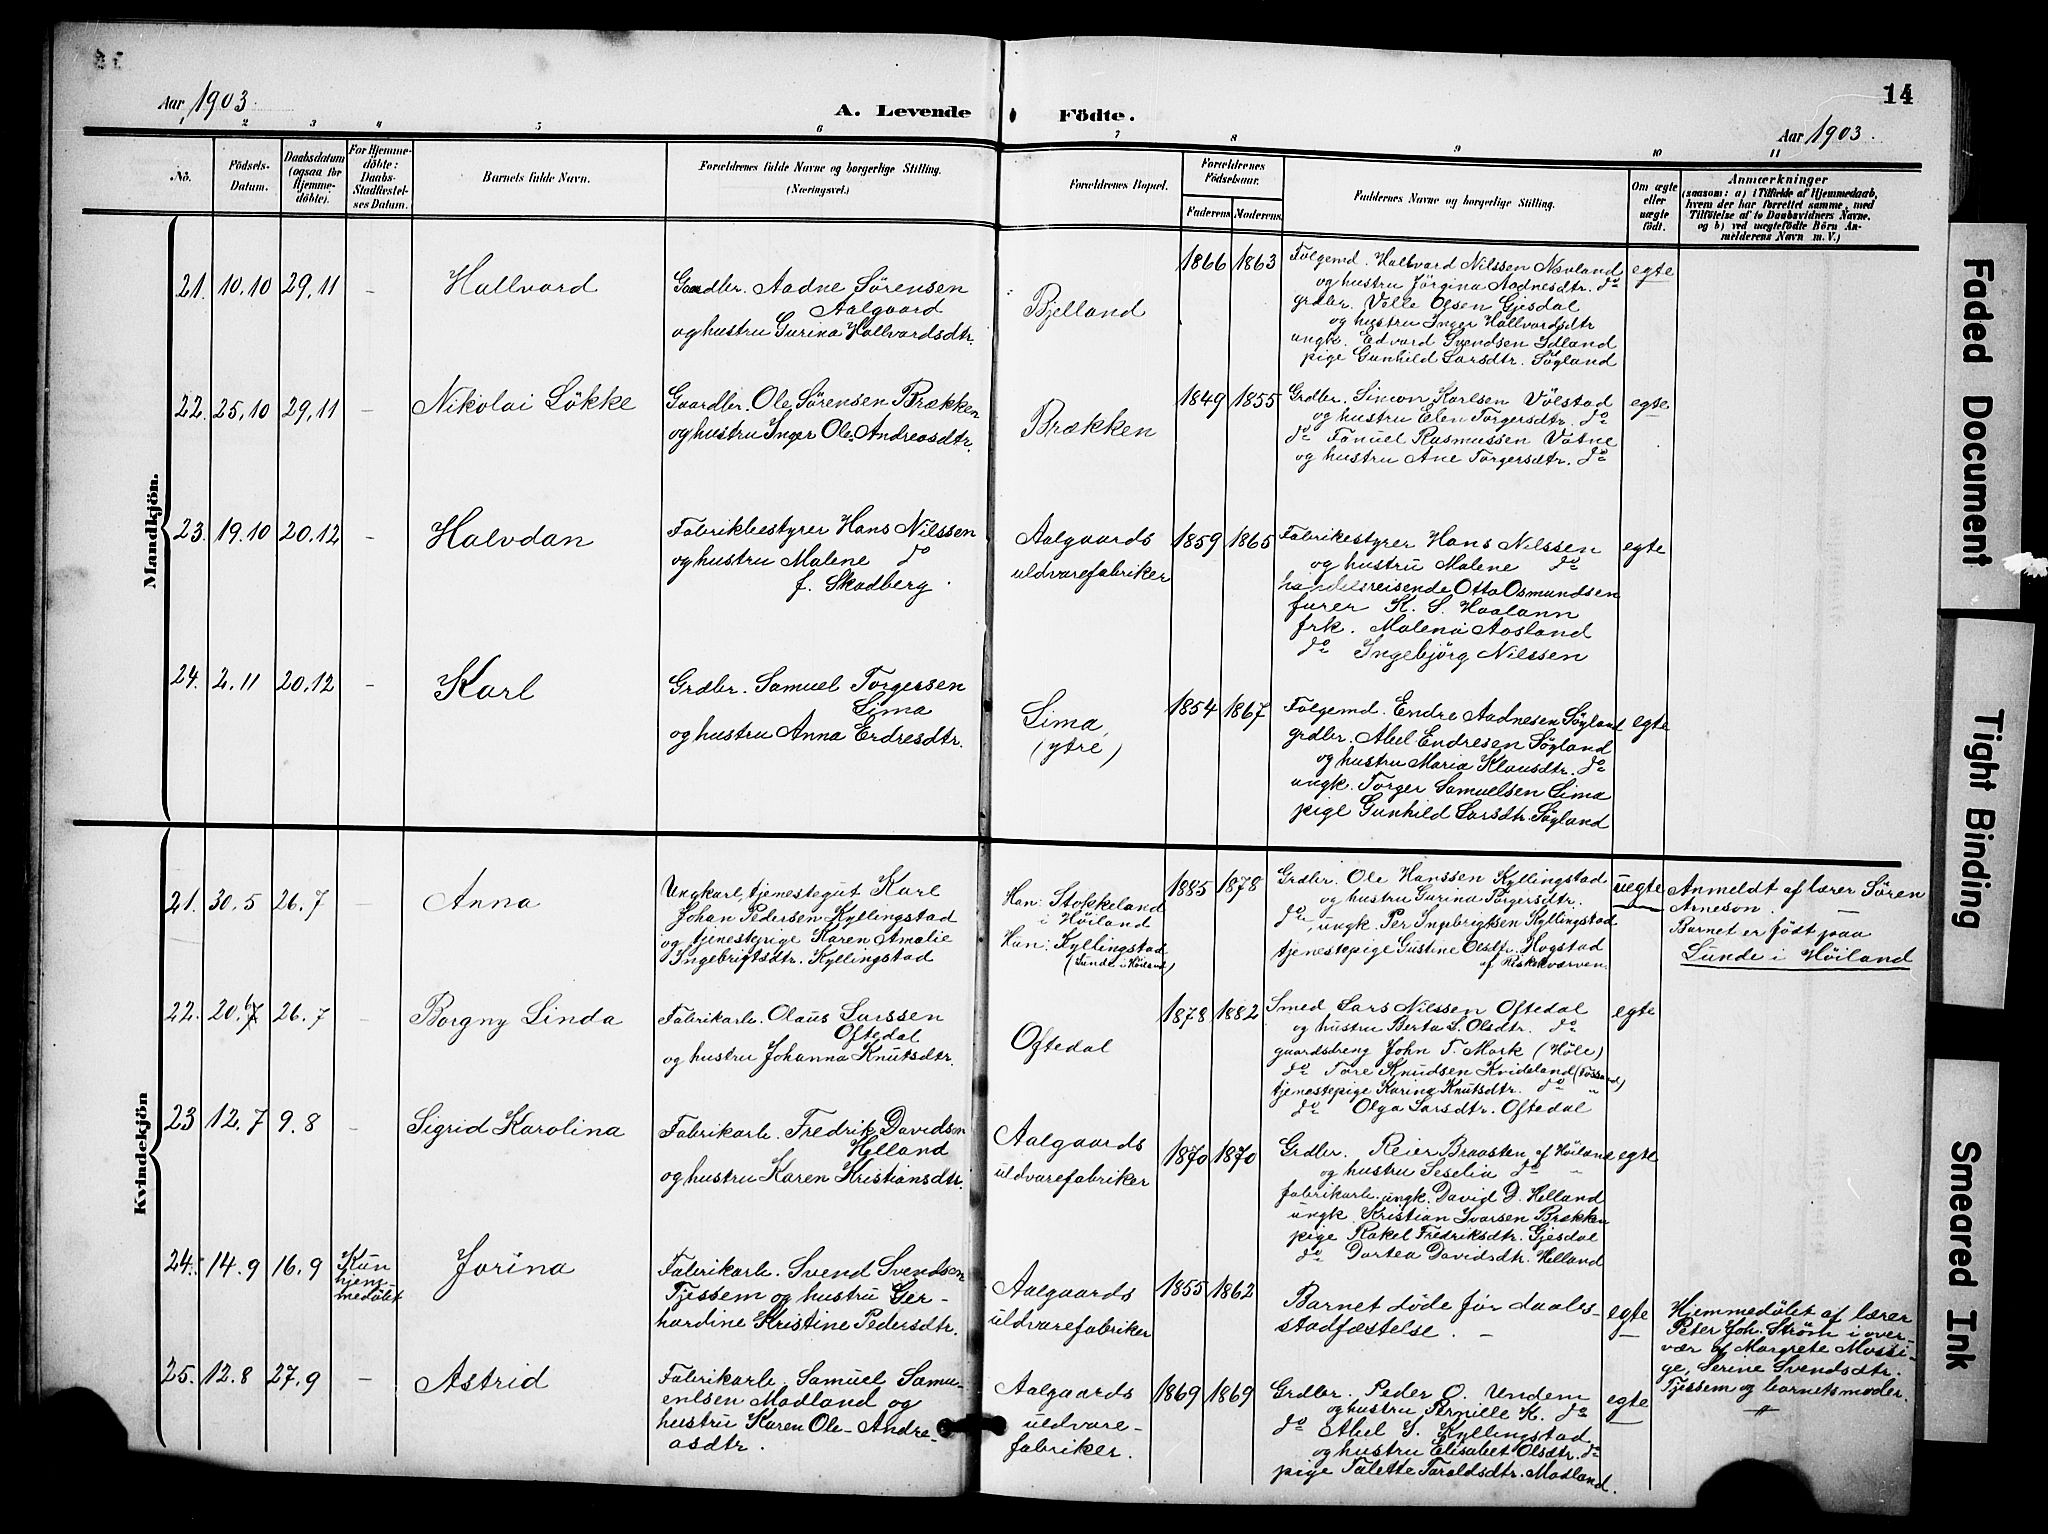 Aar 1903.
A. Levende Födte.
14
Aar 1903.
1 2 3 4 5 6 7 8 9 10 11
No.
Födsels-Datum.
Daabsdatum (ogsaa for Hjemmedöbte).
For Hjemmedöbte: Daabs-Stadfæstelses Datum.
Barnets fulde Navn.
Forældrenes fulde Navne og borgerlige Stilling.
(Næringsvei.)
Forældrenes Bopæl.
Forældrenes Födselsaar.
Faderens. Moderens.
Faddernes Navne og borgerlige Stilling.
Om ægte eller uægte födt.
Anmærkninger
(saasom: a) i Tilfælde af Hjemmedaab, hvem der har forrettet samme, med Tilföielse af to Daabsvidners Navne, og b) ved uægtefödte Börn Anmelderens Navn m. V.)
Mandkjön.
21. 10.10 29.11 - Hallvard
Gaardbr. Aadne Sørensen
Aalgaard
og hustru Gurina Hallvardsdtr.
Bjelland
1866 1863
Følgemd. Hallvard Nilssen Nevland
og hustru Jørgina Aadnesdtr. do
grdbr. Volle Olsen Gjesdal
og hustru Inger Hallvardsdtr
ungk. Edvard Svendsen Idland
pige Gunhild Larsdtr. Søyland
egte
22. 25.10 29.11 - Nikolai Løkke
Gaardbr. Ole Sørensen Brækken
og hustru Inger Ole-Andreasdtr.
Brækken
1849 1855
Grdbr. Simon Karlsen Vølstad
og hustru Elen Torgersdtr. do
do Fanuel Rasmussen Vatne
og hustru Ane Torgersdtr. do
egte
23. 19.10 20.12 - Halvdan
Fabrikbestyrer Hans Nilssen
og hustru Malene do
f. Skadberg.
Aalgaards
uldvarefabriker
1859 1865
Fabrikestyrer Hans Nilssen
og hustru Malene do
handelsreisende Otto Osmundsen
furer K. S. Haaland
frk. Malena Aasland
do Ingebjörg Nilssen
egte
24. 2.11 20.12 - Karl
Grdbr. Samuel Torgersen
Lima
og hustru Anna Erdresdtr.
Lima,
(ytre)
1854 1867
Følgemd. Endre Aadnesen Søyland
grdbr. Abel Endresen Søyland
og hustru Maria Klausdtr. do
ungk. Torger Samuelsen Lima
pige Gunhild Larsdtr. Søyland
egte
Kvindekjön
21. 30.5 26.7 - Anna
Ungkarl, tjenestegut Karl
Johan Pedersen Kyllingstad
og tjenestepige Karen Amalie
Ingebrigtsdtr. Kyllingstad
Han: Stokkeland
i Höiland
Hun: Kyllingstad
(Lunde i Höiland)
1885 1878
Grdbr. Ole Hanssen Kyllingstad
og hustru Gurina Torgersdtr.
do, ungk. Per Ingebrigtsen Kyllingstad
tjenestepige Gustine Olsdtr. Hogstad
af Riskekværven.
uegte
Anmeldt af lærer Sören
Arneson.
Barnet er født paa
Lunde i Höiland
22. 20.6/7 26.7 - Borgny Linda
Fabrikarb. Olaus Larssen
Oftedal
og hustru Johanna Knutsdtr.
Oftedal
1878 1882
Smed Lars Nilssen Oftedal
og hustru Berta S. Olsdtr. do
gaardsdreng John T. Mork (Höle)
do Tore Knudsen Kvideland (Fossand)
tjenestepige Karina Knutsdtr. do "
do Olga Larsdtr. Oftedal
egte
23 12.7 9.8 - Sigrid Karolina
Fabrikarb. Fredrik Davidsen
Helland
og hustru Karen Kristiansdtr.
Aalgaards
uldvarefabriker
1870 1870
Grdbr. Reier Braasten af Höiland
og hustru Seselia do "
fabrikarb. ungk. David D. Helland
ungk. Kristian Ivarsen Brækken
pige Rakel Fredriksdtr. Gjesdal
do Dortea Davidsdtr. Helland
egte
24. 14.9 16.9 Kun hjemmedøbt Jorina
Fabrikarb. Svend Svendsen
Tjessem og hustru Ger-
hardine Kristine Pedersdtr.
Aalgaards
uldvarefabriker
1855 1862
Barnet døde før daabs-
stadfæstelse. -
egte
Hjemmedøbt af lærer
Peter Joh. Strøm i over-
vær af Margrete Mossi-
ge, Serine Svendsdtr.
Tjessem og barnets moder.
25. 12.8 27.9 - Astrid
Fabrikarb. Samuel Samu-
elsen Madland og
hustru Karen Ole-Andre-
asdtr.
Aalgaards
uldvare-
fabriker.
1869 1869
Grdbr. Peder O. Undem
og hustru Pernille K. do
do Abel S. Kyllingstad
og hustru Elisabet Olsdtr. do
pige Talette Taraldsdtr. Madland.
egte
Faded Document
Tight Binding
Smeared Ink